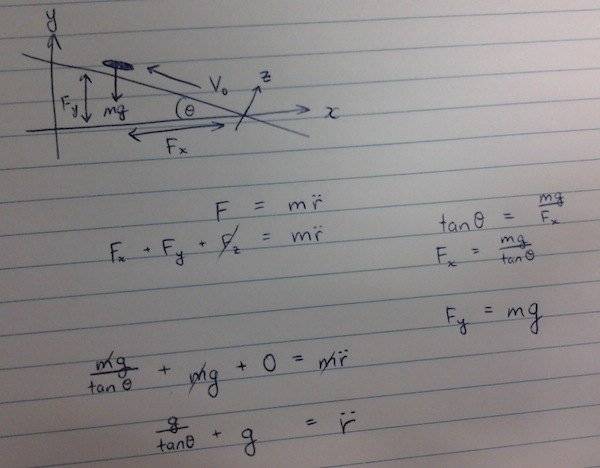 y
z
V₀
F_y
mg
θ
x
F_x
F = mr̈
F_x + F_y + F_z = mr̈
tanθ = mg/F_x
F_x = mg/tanθ
F_y = mg
mg/tanθ + mg + 0 = mr̈
g/tanθ + g = r̈